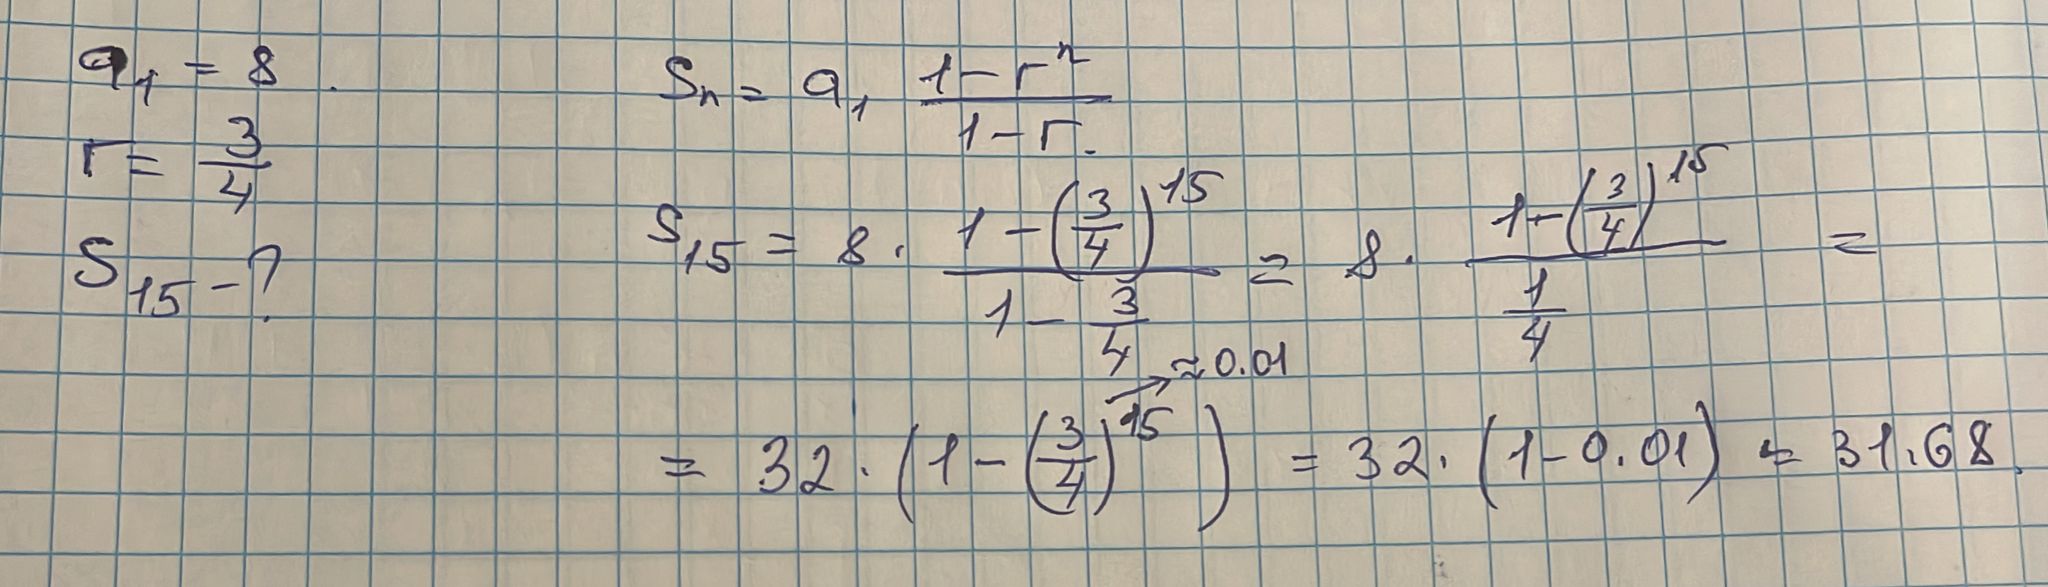 a₁ = 8.
r = 3/4
S₁₅ - ?
Sₙ = a₁ (1 - rⁿ)/(1 - r).
S₁₅ = 8 · (1 - (3/4)¹⁵)/(1 - 3/4) = 8 · (1 - (3/4)¹⁵)/(1/4) =
≈ 0.01
= 32 · (1 - (3/4)¹⁵) = 32 · (1 - 0.01) = 31.68.